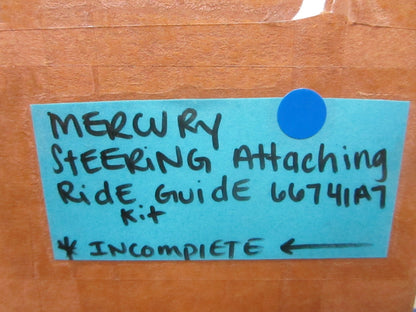 MERCURY
STEERING Attaching
RIDE GUIDE 66741A7
Kit
* INCOMPLETE ←